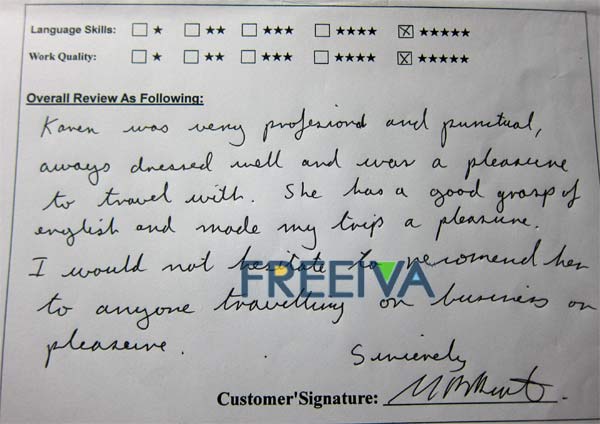 Language Skills: ☐ ★ ☐ ★★ ☐ ★★★ ☐ ★★★★ ☒ ★★★★★
Work Quality: ☐ ★ ☐ ★★ ☐ ★★★ ☐ ★★★★ ☒ ★★★★★
Overall Review As Following:
Karen was very profesional and punctual,
aways dressed well and was a pleasure
to travel with. She has a good grasp of
english and made my trip a pleasure.
I would not hesitate to recomend her
FREEIVA
to anyone travelling on business or
pleasure.
Sincerely
Customer'Signature: